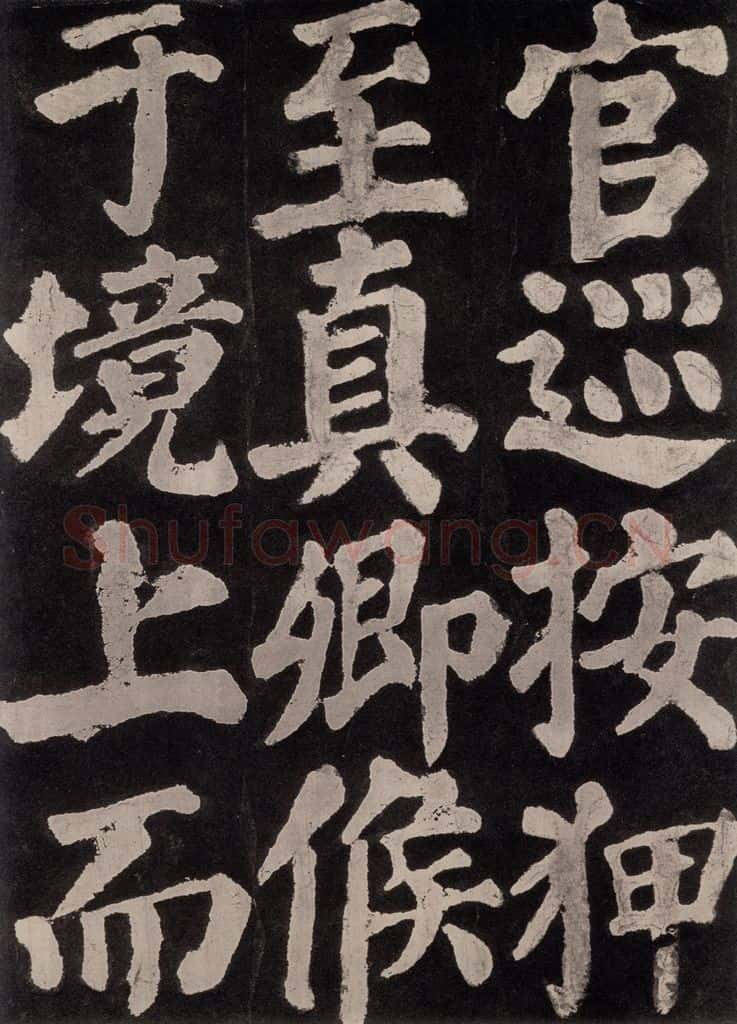 官巡按狎
至真卿候
于境上而
Shufawang.CN